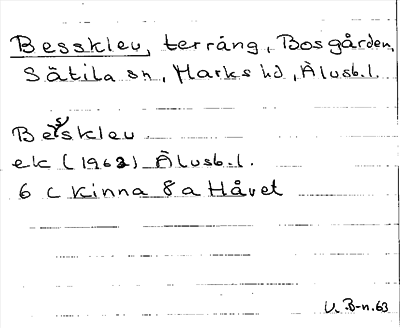 Bessklev, terräng, Bosgården,
Sätila sn, Marks hd, Älvsb. l.
Besklev
ek (1962) Älvsb. l.
6 c Kinna 8 a Håvet
U. B-n. 63